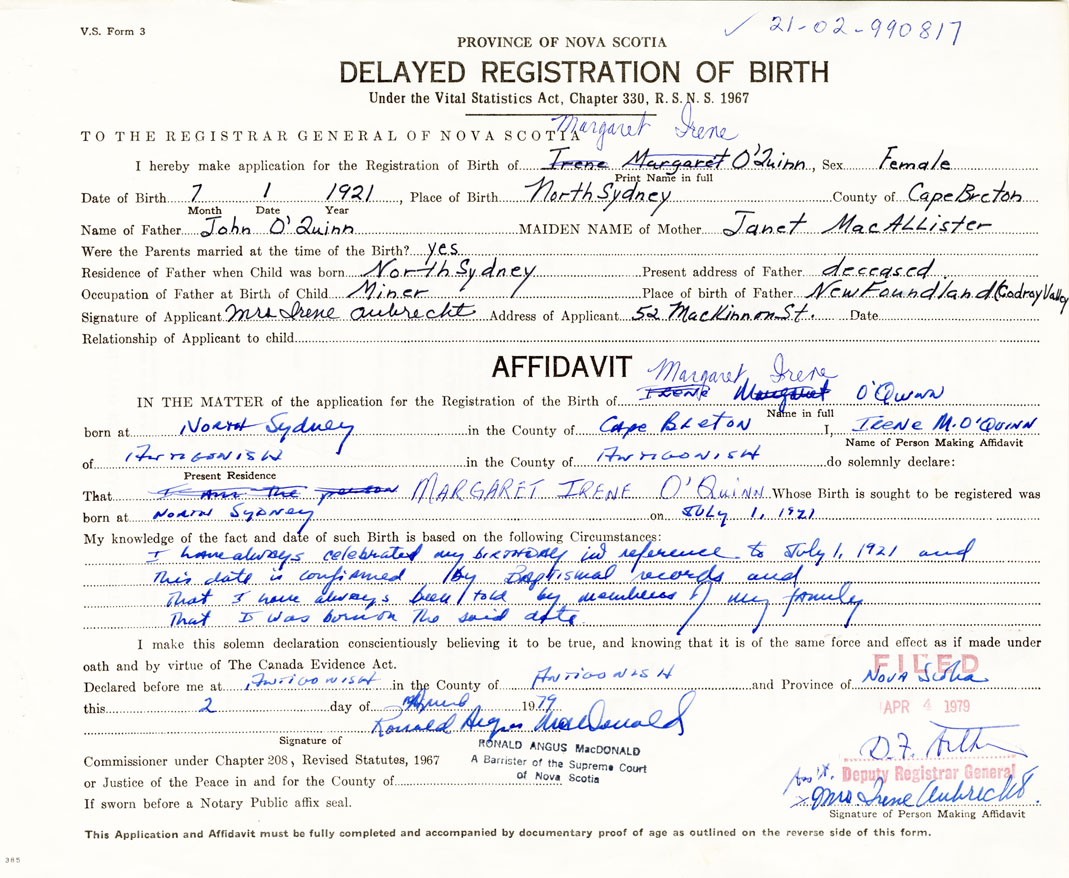 V.S. Form 3
✓ 21-02-990817
PROVINCE OF NOVA SCOTIA
DELAYED REGISTRATION OF BIRTH
Under the Vital Statistics Act, Chapter 330, R.S.N.S. 1967
TO THE REGISTRAR GENERAL OF NOVA SCOTIA
Margaret Irene
I hereby make application for the Registration of Birth of Irene Margaret O'Quinn, Sex Female
Print Name in full
Date of Birth 7 1 1921, Place of Birth North Sydney County of Cape Breton
Month Date Year
Name of Father John O'Quinn MAIDEN NAME of Mother Janet MacAllister
Were the Parents married at the time of the Birth? yes
Residence of Father when Child was born North Sydney Present address of Father deceased
Occupation of Father at Birth of Child Miner Place of birth of Father NewFoundland (Codroy Valley
Signature of Applicant Mrs Irene Aubrecht Address of Applicant 52 MacKinnon St. Date
Relationship of Applicant to child
AFFIDAVIT
Margaret Irene
IN THE MATTER of the application for the Registration of the Birth of Irene Margaret O'Quinn
Name in full
born at North Sydney in the County of Cape Breton I, Irene M. O'Quinn
Name of Person Making Affidavit
of Antigonish in the County of Antigonish do solemnly declare:
Present Residence
That I am the person MARGARET IRENE O'Quinn Whose Birth is sought to be registered was
born at North Sydney on July 1, 1921
My knowledge of the fact and date of such Birth is based on the following Circumstances:
I have always celebrated my birthday in reference to July 1, 1921 and
This date is confirmed by Baptismal records and
That I have always been told by members of my family
That I was born on the said date
I make this solemn declaration conscientiously believing it to be true, and knowing that it is of the same force and effect as if made under
oath and by virtue of The Canada Evidence Act.
FILED
Declared before me at Antigonish in the County of Antigonish and Province of Nova Scotia
this 2 day of April 1979
APR 4 1979
Ronald Angus MacDonald
Signature of
RONALD ANGUS MacDONALD
A Barrister of the Supreme Court
of Nova Scotia
Commissioner under Chapter 208, Revised Statutes, 1967
or Justice of the Peace in and for the County of
If sworn before a Notary Public affix seal.
D.F.
Ass't. Deputy Registrar General
x Mrs. Irene Aubrecht.
Signature of Person Making Affidavit
This Application and Affidavit must be fully completed and accompanied by documentary proof of age as outlined on the reverse side of this form.
385